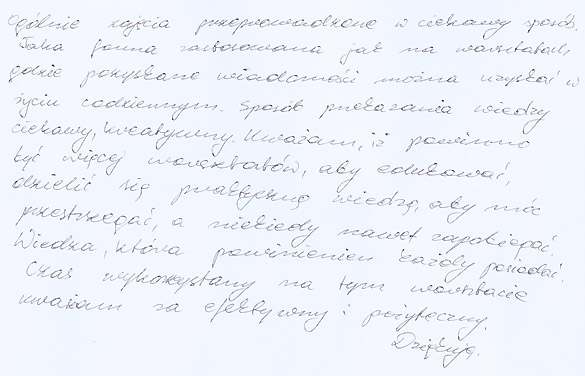 Ogólnie zajęcia przeprowadzone w ciekawy sposób.
Taka forma zastosowana jak na warsztatach
gdzie pozyskane wiadomości można uzyskać w
życiu codziennym. Sposób przekazania wiedzy
ciekawy, kreatywny. Uważam, iż powinno
być więcej warsztatów, aby edukować,
dzielić się praktyczną wiedzą, aby móc
przestrzegać, a niekiedy nawet zapobiegać.
Wiedza, którą powinienien każdy posiadać.
Czas wykorzystany na tym warsztacie
uważam za efektywny i pożyteczny.
Dziękuję.